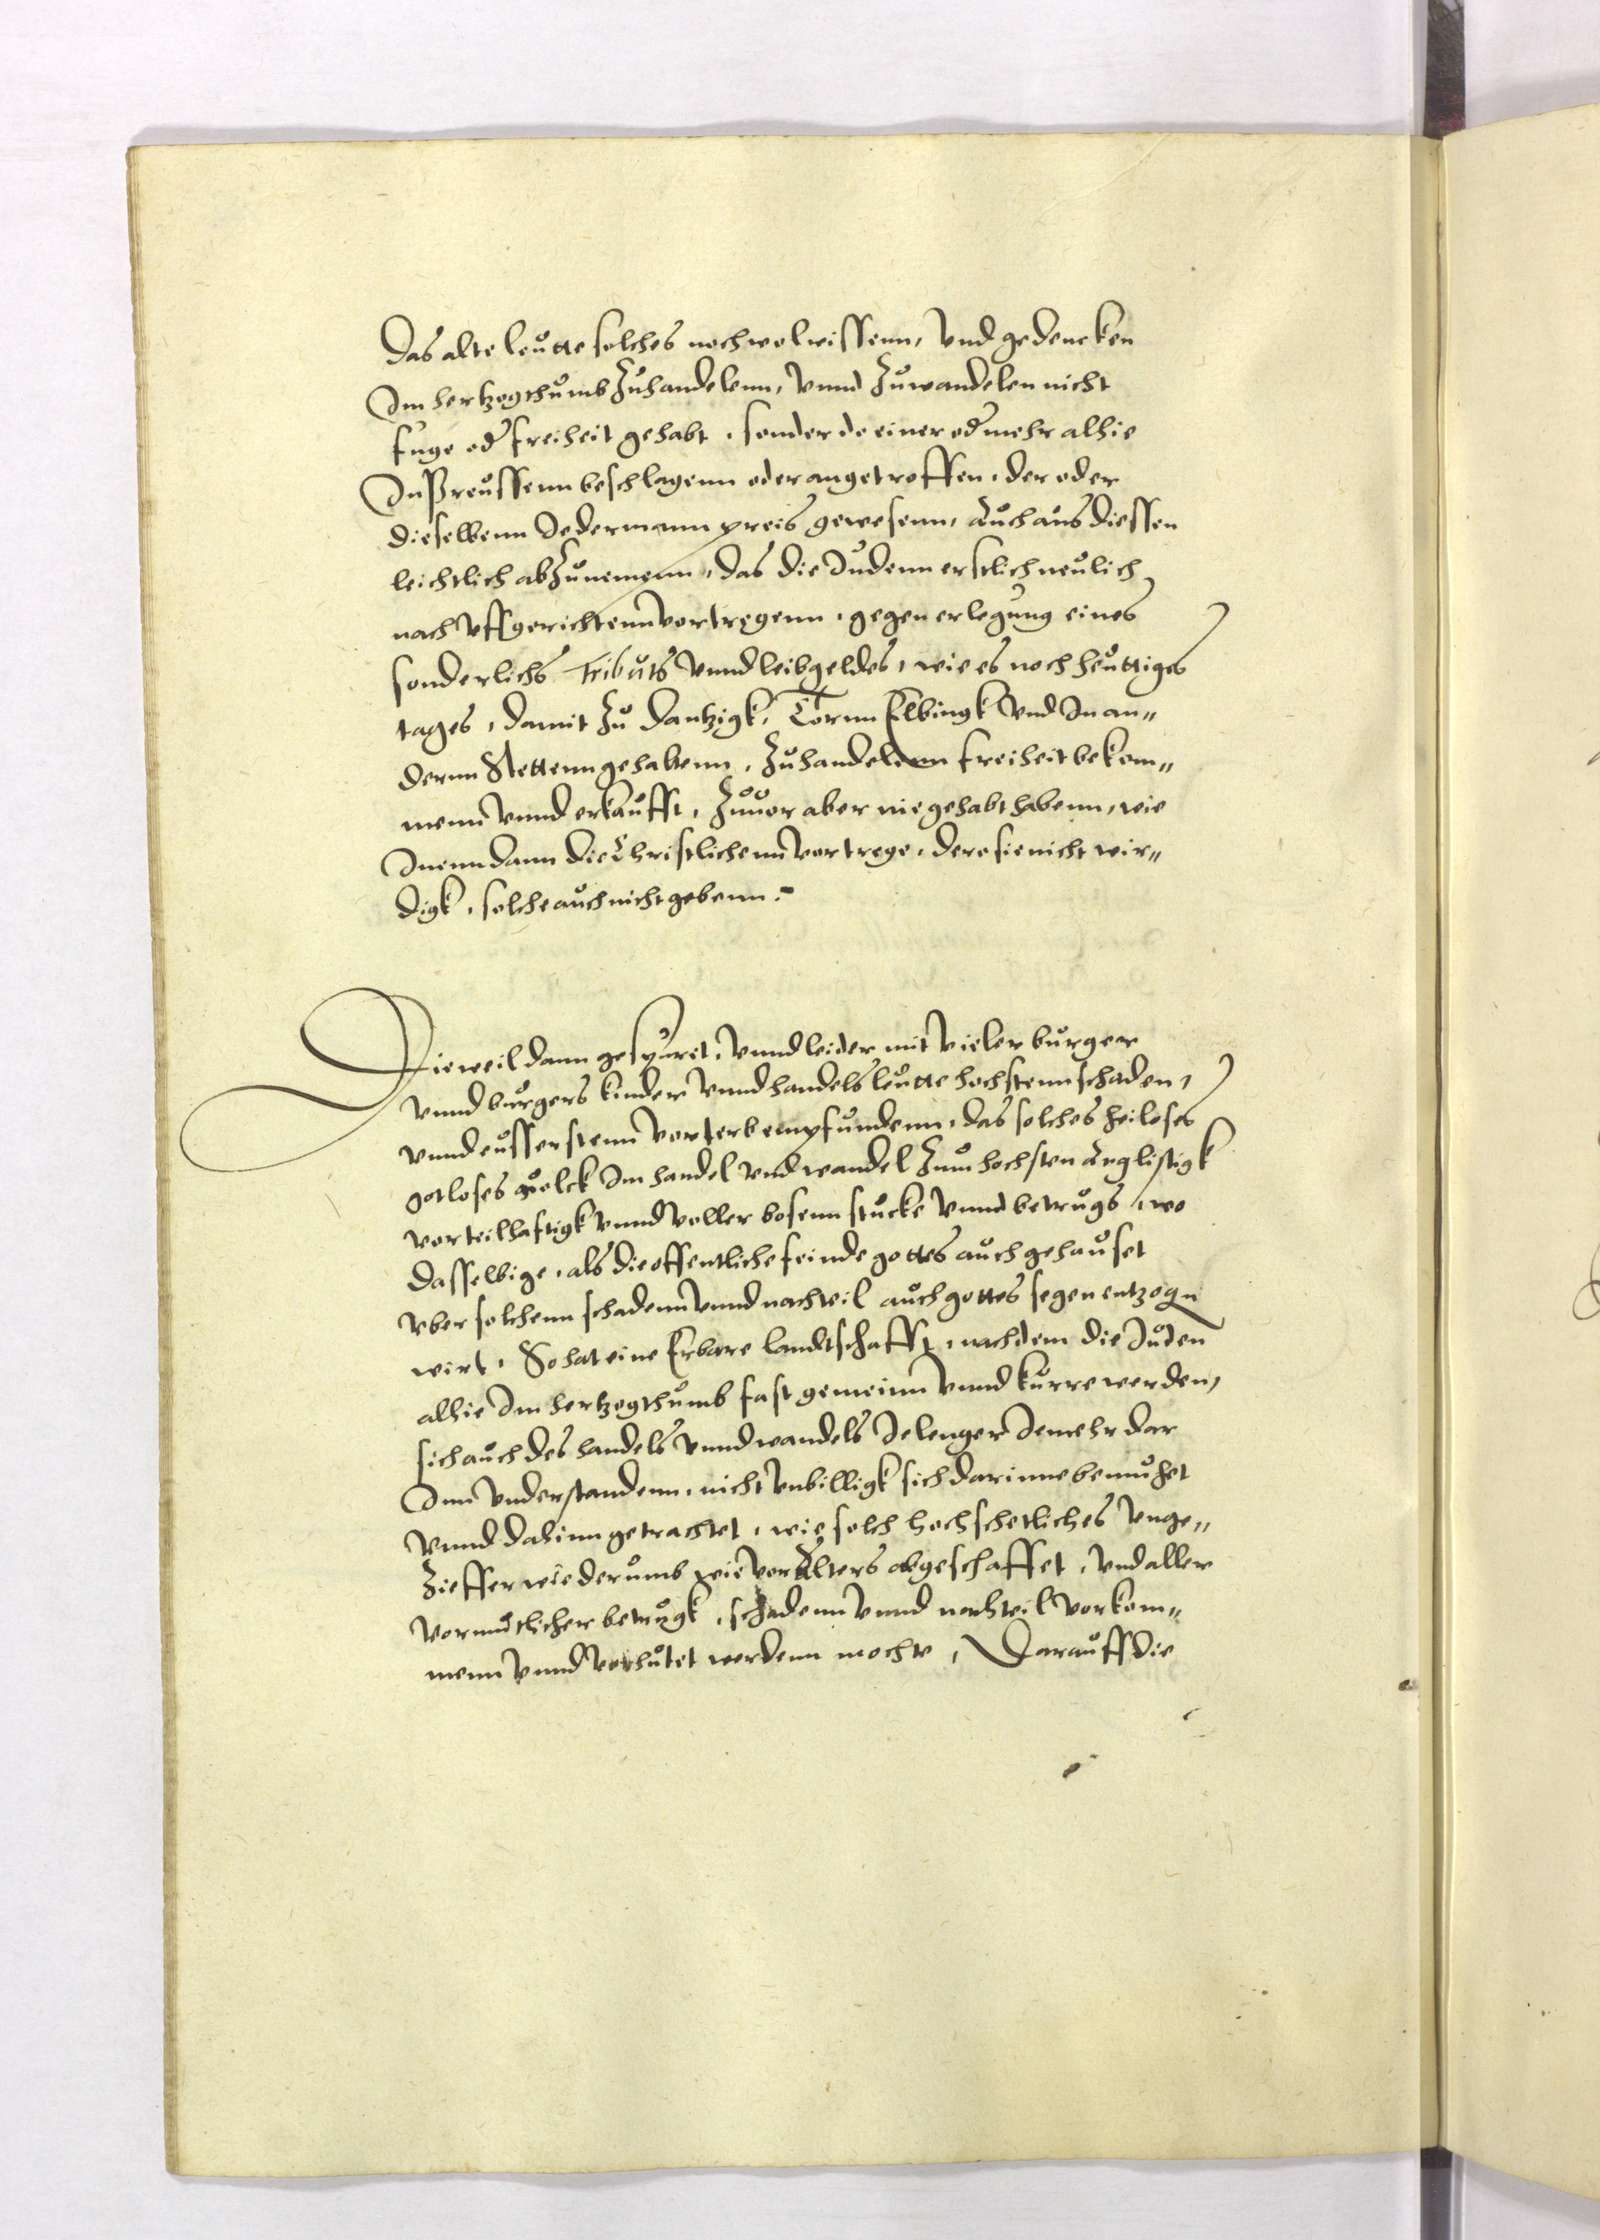 das alte leutte solches noch wol wissenn, vnd gedencken
Im hertzogthumb zuhandelenn, vnnd zuwandelen nicht
fuge od freiheit gehabt, sonder do einer od mehr alhie
In Preussenn beschlagenn oder angetroffen, der oder
dieselbenn Jedermann preis gewesenn, Auch aus diessen
leichtlich abzunemenn, das die Judenn erstlich neulich
nach vffgerichtenn vortregenn, gegen erlegung eines
sonderlichs Tributs vnnd leibgeldes, wie es noch heuttiges
tages, damit zu Dantzigk, Tornn Elbingk vnd In an„
dernn Stettenn gehaltenn, zuhandelenn freiheit bekom„
menn vnnd erkaufft, zuuor aber nie gehabt habenn, wie
Inenn dann die Christlichenn vortrege, dero sie nicht wir„
digk, solche auch nicht gebenn.

Dieweil dann gespuret, vnnd leider mit vieler burger
vnnd burgers kinder vnnd handels leutte hochstenn schaden,
vnnd eusserstenn vorterb empfundenn, das solches heiloses
gotloses volck Im handel vnd wandel zum hochsten Arglistigk
vorteilhaftigk vnnd voller bosenn stucke vnnd betrugs, wo
dasselbige, als die offentliche feinde gottes auch gehauset
vber solchenn schadenn vnnd nachteil auch gottes segen entzogn
wirt, So hat eine Erbare landtschafft, nachdem die Juden
alhie Im hertzogthumb fast gemeinn vnnd kurre werden,
sich auch des handels vnnd wandels Je lenger Je mehr dar
Inn vnderstandenn, nicht vnbilligk sich darinne bemuhet
vnnd dahinn getrachtet, wie solch hochschetliches vnge„
zieffer wiederumb wie vor Alters abgeschaffet, vnd aller
vormutlicher betrugk, schadenn vnnd nachteil vorkom„
menn vnnd verhutet werdenn mochte, Darauff die